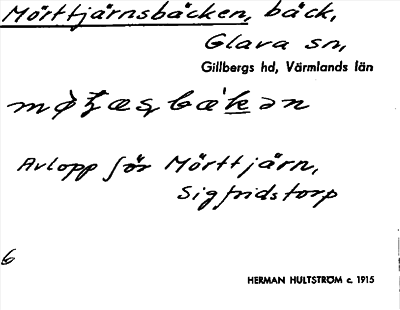 Mörttjärnsbäcken, bäck,
Glava sn,
Gillbergs hd, Värmlands län
Avlopp för Mörttjärn,
Sigfridstorp
6
HERMAN HULTSTRÖM c. 1915